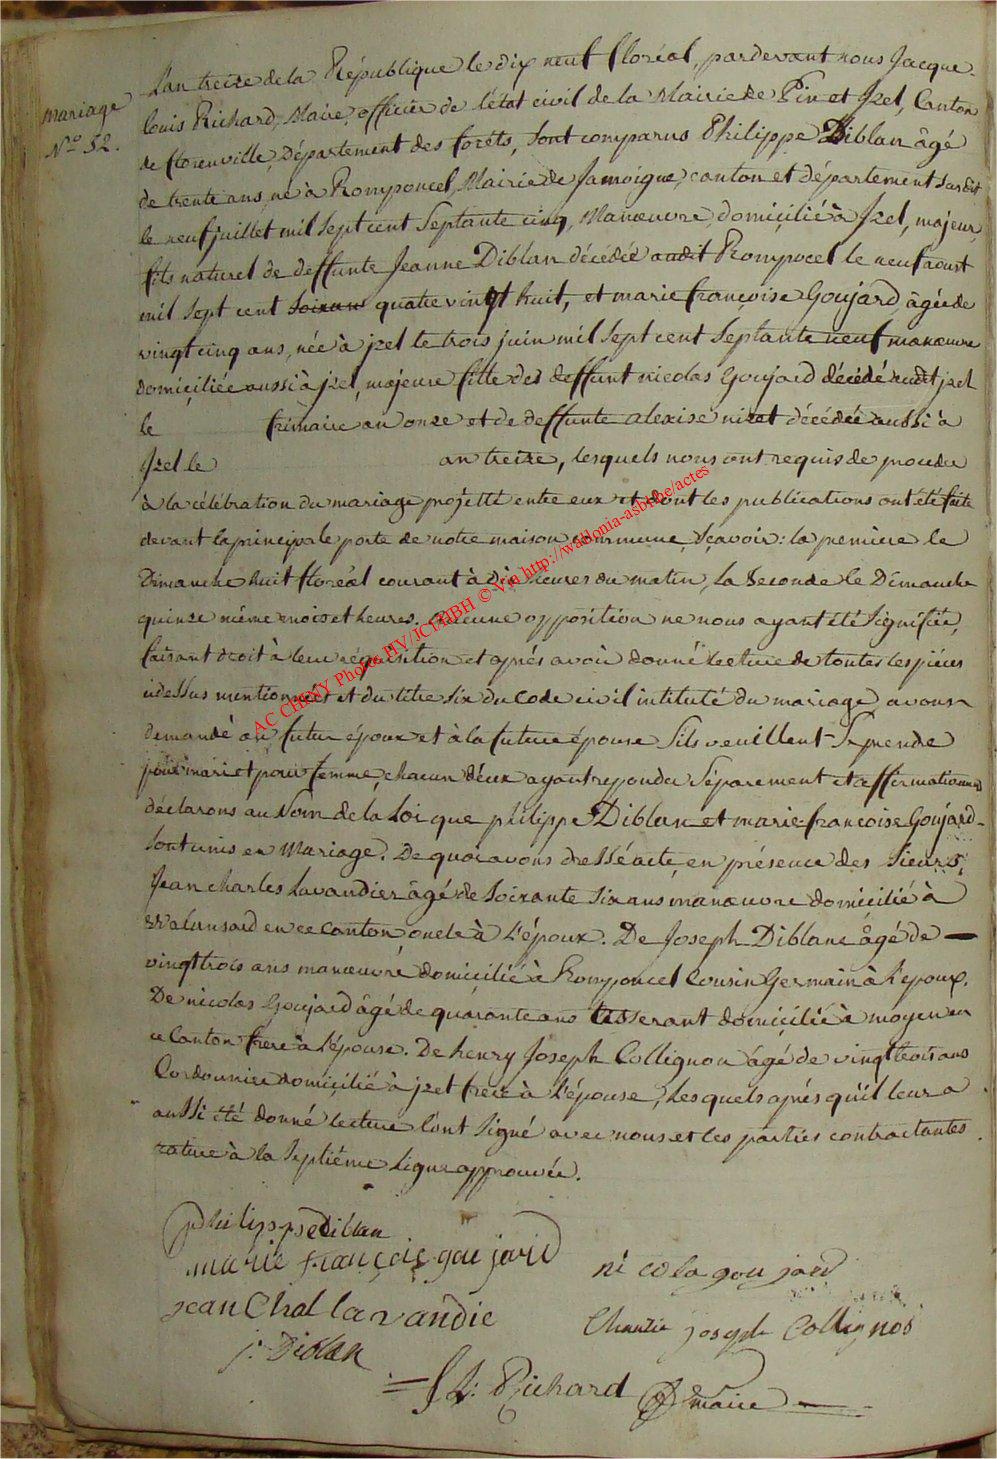 mariage
N.º 52.
L'an treize de la République le dix neuf floréal, pardevant nous Jacque
louis Richard, Maire, officier de létat civil de la Mairie de Pin et Izel, Canton
de florenville, Département des forêts, sont comparus Philippe Diblan âgé
de trente ans, né à Romponcel, Mairie de Jamoigne, canton et département susdit
le neuf juillet mil sept cent septante cinq, Manœuvre, domicilié à Izel, majeur,
fils naturel de deffunte Jeanne Diblan décédée audit Rompocel le neuf aoust
mil sept cent soixan quatre vingt huit, et marie françoise Goujard, âgée de
vingt cinq ans, née à jzel le trois juin mil sept cent septante neuf manœuvre
domiciliée aussi à jzel, majeure fille des deffunt nicolas Goujard décédé audit jzel
le frimaire an onze et de deffunte alexise nizet décédée aussi à
Izel le an treize, lesquels nous ont requis de proceder
à la célébration du mariage projetté entre eux et dont les publications ont été faite
devant la principale porte de notre maison commune, sçavoir: la première le
Dimanche huit floréal courant à dix heures du matin, la seconde le Dimanche
quinze même mois et heures. aucune opposition ne nous ayant été signifiée,
faisant droit à leur réquisition et après avoir donné lecture de toutes les pièces
cidessus mentionnées et du titre six du Code civil intitulé du mariage, avons
demandé au futur époux et à la future épouse s'ils veuillent se prendre
pour mari et pour femme, chacun d'eux ayant repondu séparement et affirmativement
déclarons au Nom de la Loi que philippe Diblan et marie francoise Goujard
sont unis en Mariage. De quoi avons dressé acte, en présence des Sieurs
Jean charles Lavandier âgé de soixante six ans manœuvre domicilié à
Valansard en ce canton, oncle à l'époux. De Joseph Diblanc âgé de —
vingt trois ans manœuvre domicilié à Romponcel Cousin Germain à l'epoux.
De nicolas Goujard âgé de quarante ans tisserant domicilié à moyen en
ce Canton frere à l'épouse. De henry Joseph Collignon âgé de vingt trois ans
Cordonnier domicilié à jzel frère à l'épouse, Lesquels après qu'il leur a
aussi été donné lecture l'ont signé avec nous et les parties contractantes
rature à la septième ligne approuvée.
philippe diblan
marie françoise goujard
nicola goujard
jean Chal lavandie
joseph Collignos
j: Diblan
J L: Richard maire
AC CHINY Photos HV/JCT/HBH © Via http://wallonia-asbl.be/actes